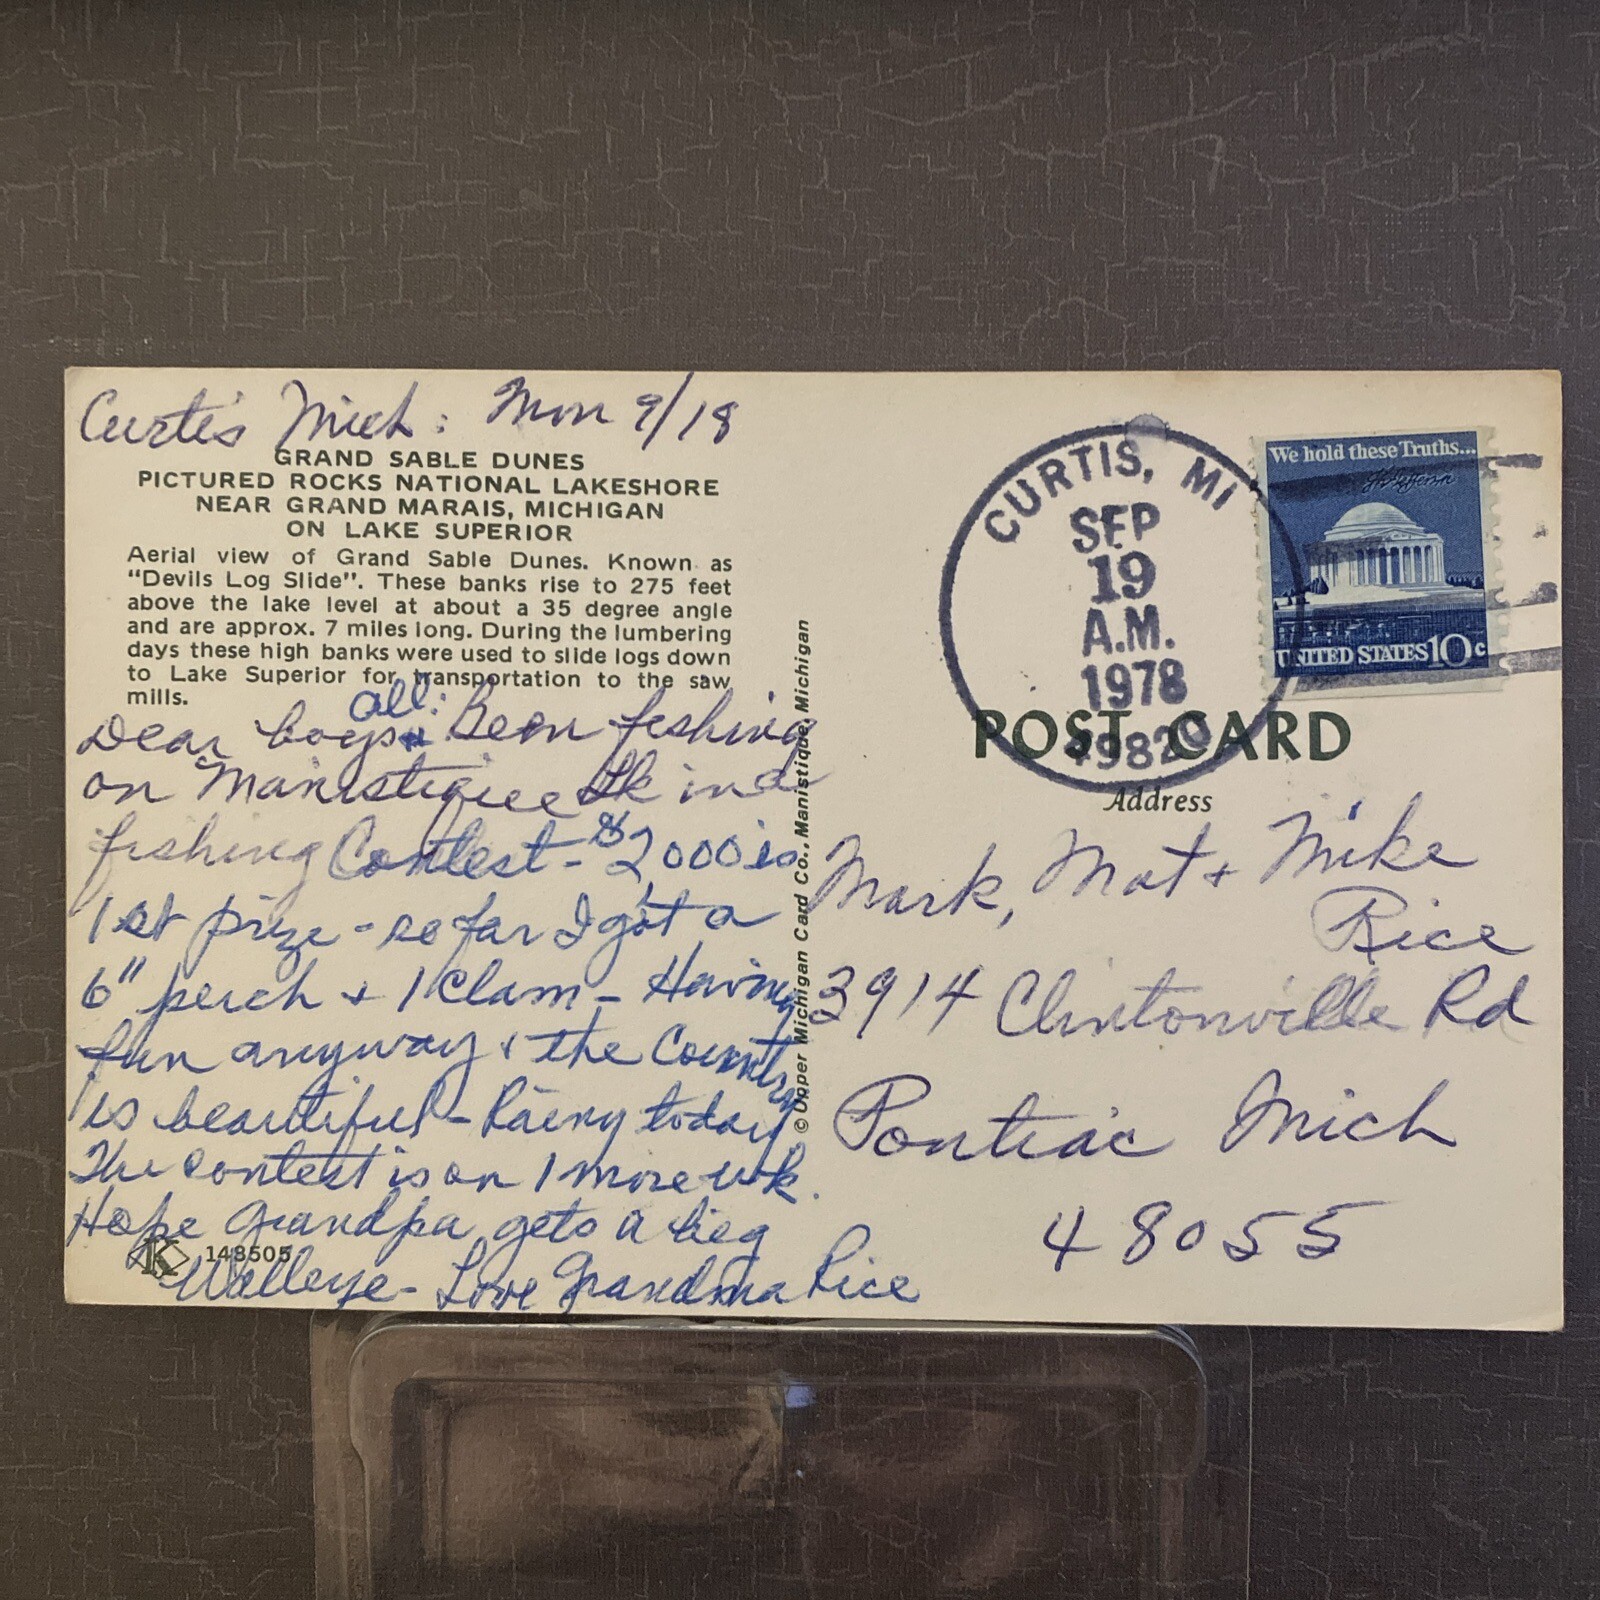 Curtis Mich: Mon 9/18
GRAND SABLE DUNES
PICTURED ROCKS NATIONAL LAKESHORE
NEAR GRAND MARAIS, MICHIGAN
ON LAKE SUPERIOR
Aerial view of Grand Sable Dunes. Known as
"Devils Log Slide". These banks rise to 275 feet
above the lake level at about a 35 degree angle
and are approx. 7 miles long. During the lumbering
days these high banks were used to slide logs down
to Lake Superior for transportation to the saw
mills.
all:
Dear boys Been fishing
on Manistique Lk in a
fishing Contest - $2000 is
1st prize - so far I got a
6" perch + 1 Clam - Having
fun anyway + the Country
is beautiful - Rainy today
The contest is on 1 more wk.
Hope Grandpa gets a big
Walleye - Love Grandma Rice
K 148505
© Upper Michigan Card Co., Manistique, Michigan
CURTIS, MI
SEP
19
A.M.
1978
49820
We hold these Truths...
Th Jefferson
UNITED STATES 10c
POST CARD
Address
Mark, Mat + Mike
Rice
3914 Clintonville Rd
Pontiac Mich
48055